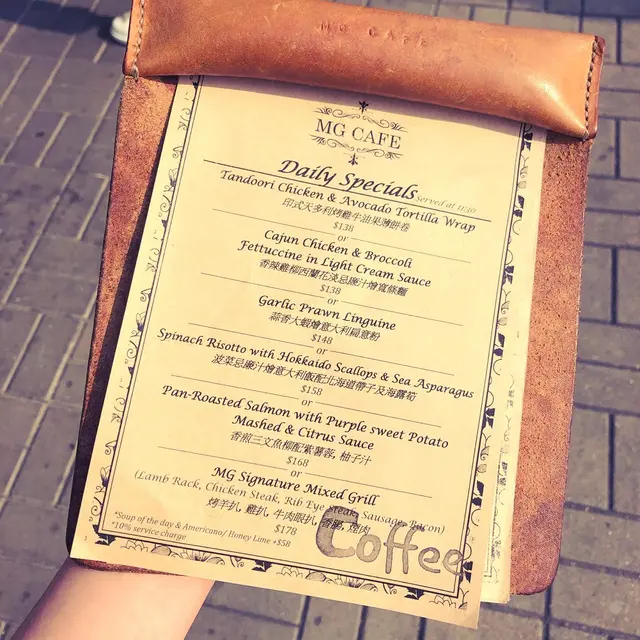 MG CAFE
MG CAFE
Daily Specials Served at 11:30
Tandoori Chicken & Avocado Tortilla Wrap
印式天多利烤雞牛油果薄餅卷
$138
or
Cajun Chicken & Broccoli
Fettuccine in Light Cream Sauce
香辣雞柳西蘭花淺忌廉汁燴寬條麵
$138
or
Garlic Prawn Linguine
蒜香大蝦燴意大利扁意粉
$148
or
Spinach Risotto with Hokkaido Scallops & Sea Asparagus
波菜忌廉汁燴意大利飯配北海道帶子及海露筍
$158
or
Pan-Roasted Salmon with Purple sweet Potato
Mashed & Citrus Sauce
香煎三文魚柳配紫薯蓉, 柚子汁
$168
or
MG Signature Mixed Grill
(Lamb Rack, Chicken Steak, Rib Eye Steak, Sausage, Bacon)
烤羊扒, 雞扒, 牛肉眼扒, 香腸, 煙肉
$178
*Soup of the day & Americano/ Honey Lime +$58
*10% service charge
Coffee